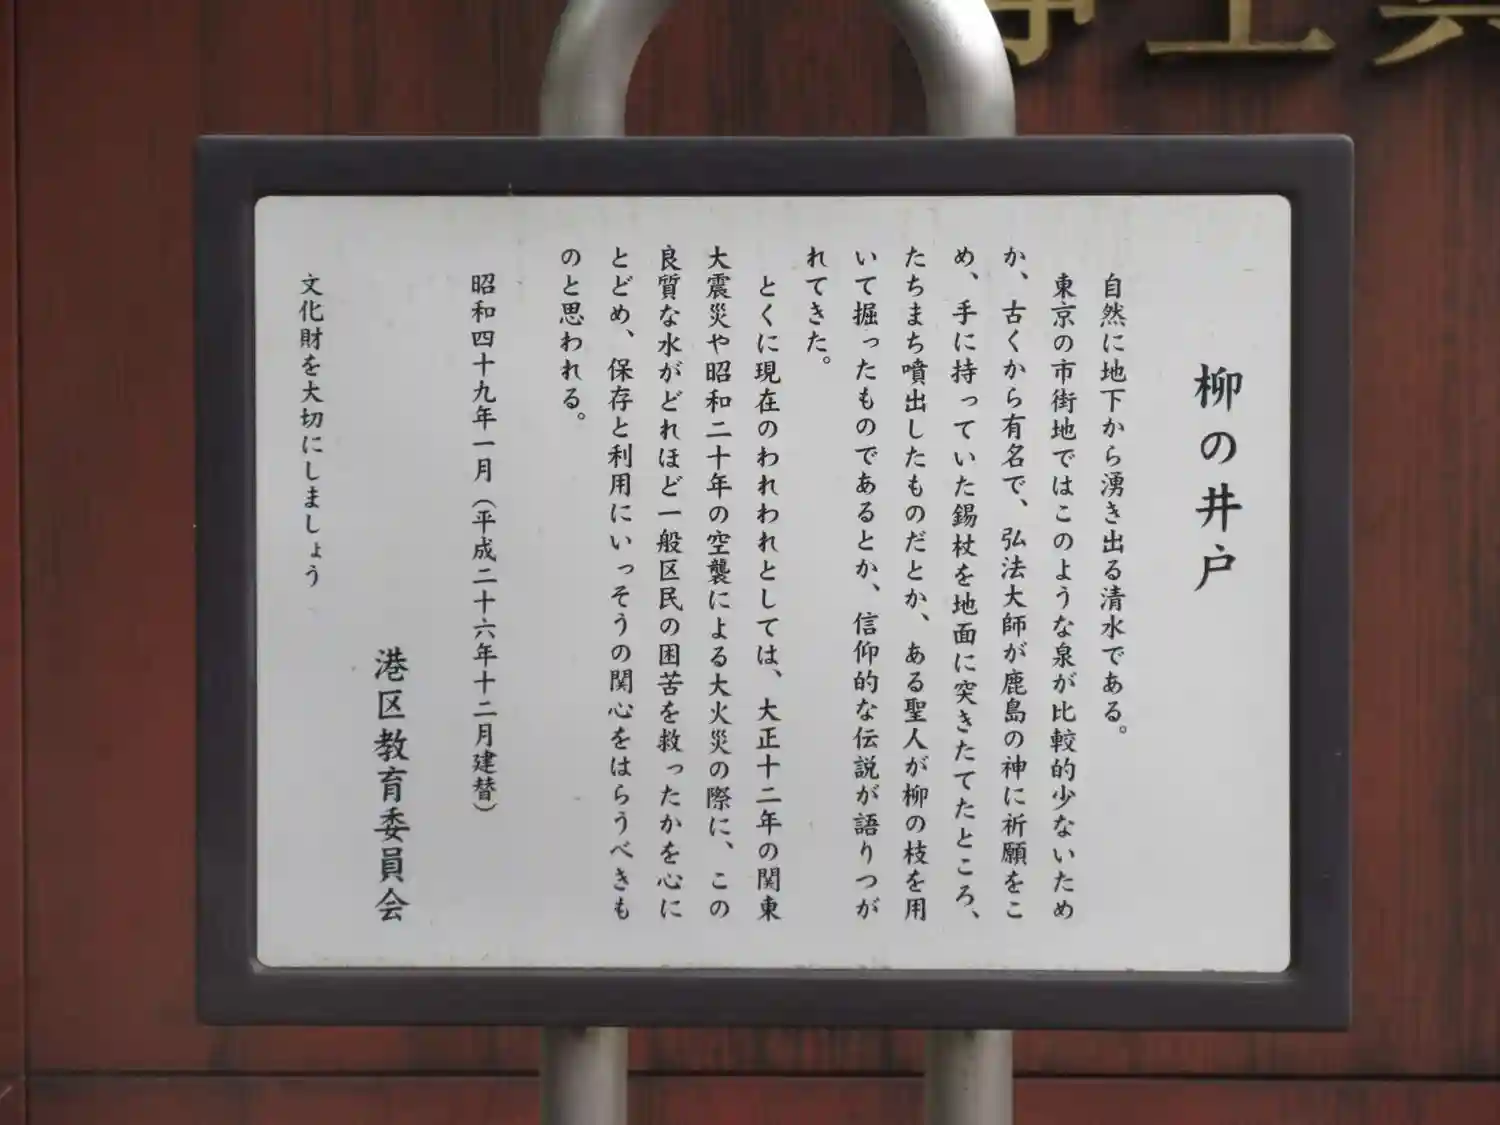 浄土真
柳の井戸
自然に地下から湧き出る清水である。
東京の市街地ではこのような泉が比較的少ないため
か、古くから有名で、弘法大師が鹿島の神に祈願をこ
め、手に持っていた錫杖を地面に突きたてたところ、
たちまち噴出したものだとか、ある聖人が柳の枝を用
いて掘ったものであるとか、信仰的な伝説が語りつが
れてきた。
とくに現在のわれわれとしては、大正十二年の関東
大震災や昭和二十年の空襲による大火災の際に、この
良質な水がどれほど一般区民の困苦を救ったかを心に
とどめ、保存と利用にいっそうの関心をはらうべきも
のと思われる。
昭和四十九年一月（平成二十六年十二月建替）
港区教育委員会
文化財を大切にしましょう